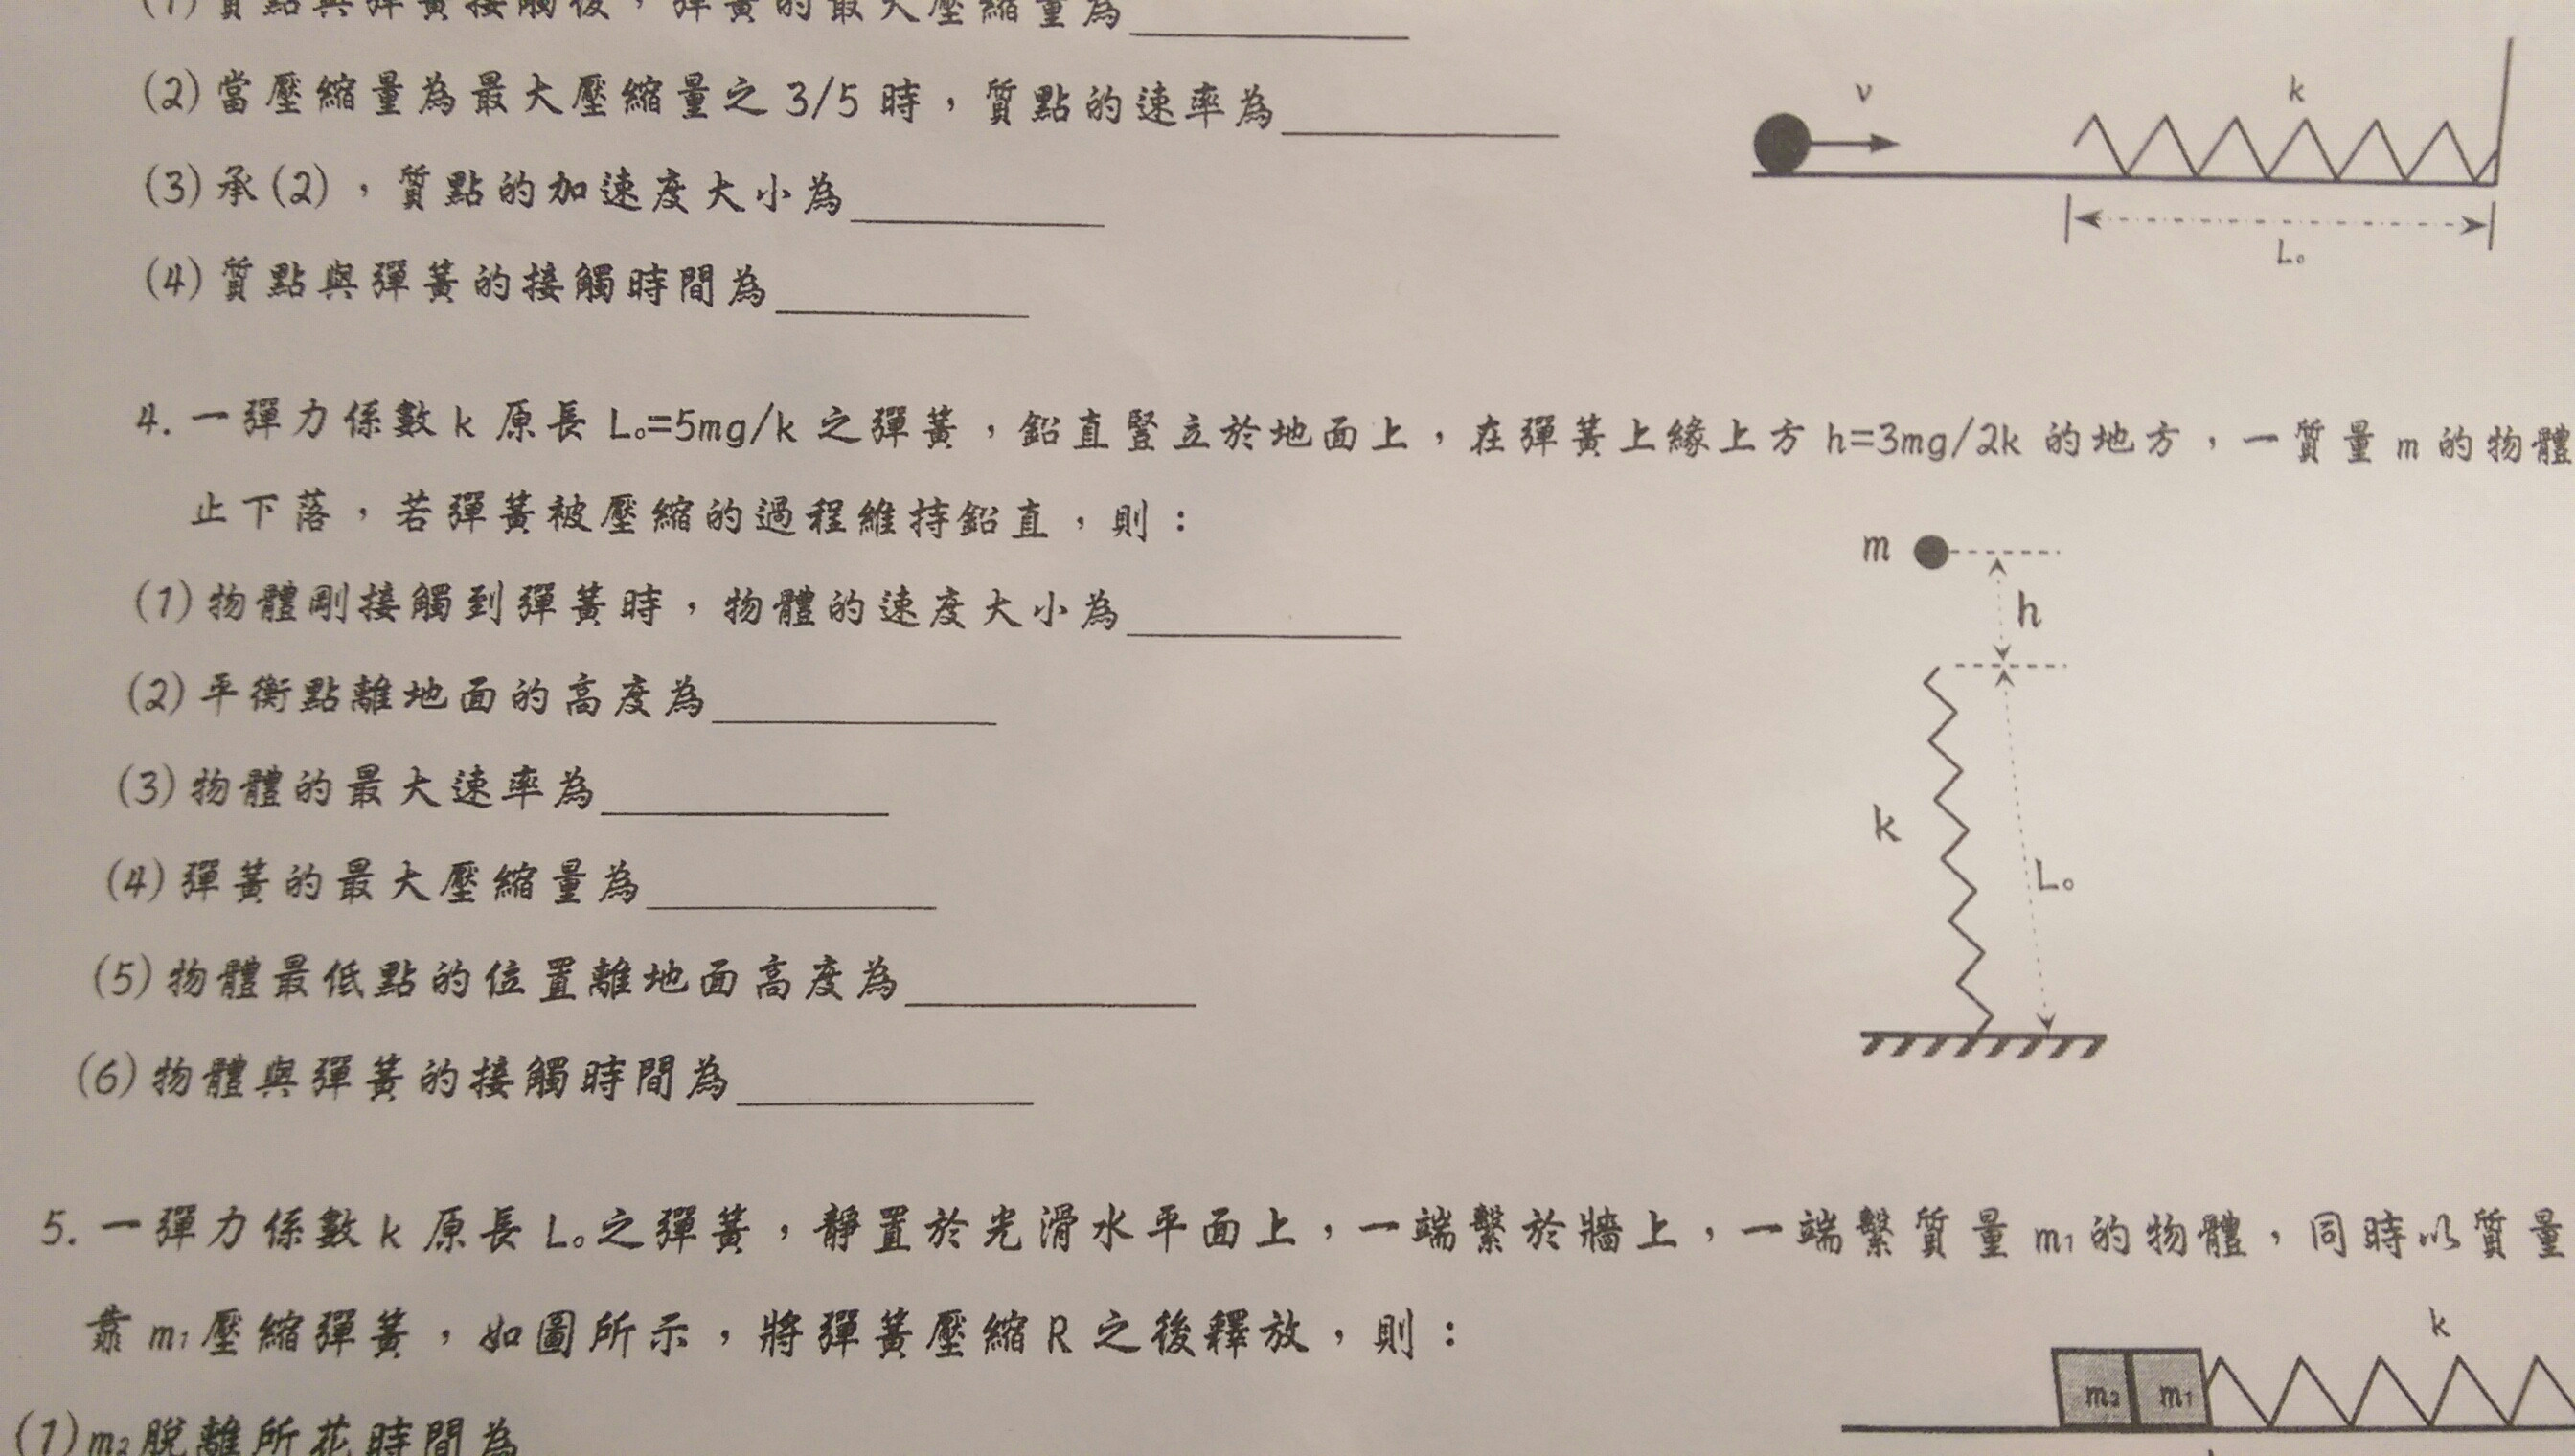 (1)質點與彈簧接觸後，彈簧的最大壓縮量為
(2)當壓縮量為最大壓縮量之 3/5 時，質點的速率為
(3)承(2)，質點的加速度大小為
(4)質點與彈簧的接觸時間為
v
k
L₀
4. 一彈力係數 k 原長 L₀=5mg/k 之彈簧，鉛直豎立於地面上，在彈簧上緣上方 h=3mg/2k 的地方，一質量 m 的物體
止下落，若彈簧被壓縮的過程維持鉛直，則：
(1)物體剛接觸到彈簧時，物體的速度大小為
(2)平衡點離地面的高度為
(3)物體的最大速率為
(4)彈簧的最大壓縮量為
(5)物體最低點的位置離地面高度為
(6)物體與彈簧的接觸時間為
m
h
k
L₀
5. 一彈力係數 k 原長 L₀之彈簧，靜置於光滑水平面上，一端繫於牆上，一端繫質量 m₁的物體，同時以質量
靠 m₁壓縮彈簧，如圖所示，將彈簧壓縮 R 之後釋放，則：
(1)m₂脫離所花時間為
k
m₂ m₁